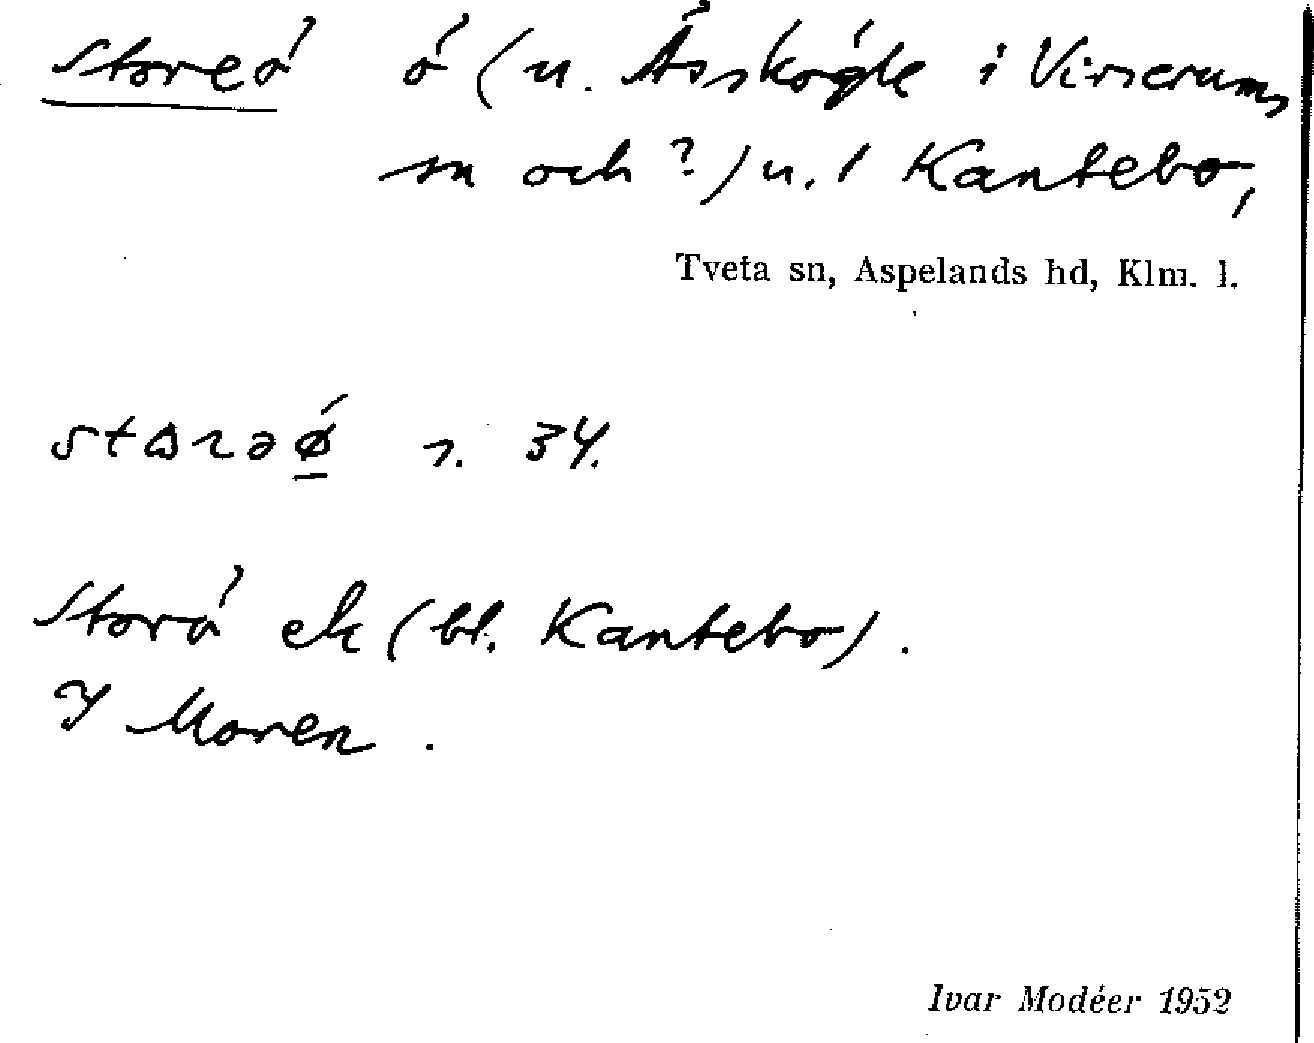 Storeå å (u. Åsskógle i Virserums
sn och ?) u. 1 Kantebo,
Tveta sn, Aspelands hd, Klm. l.
s. 34.
Storå ek (bl. Kantebo).
Y Moren.
Ivar Modéer 1952